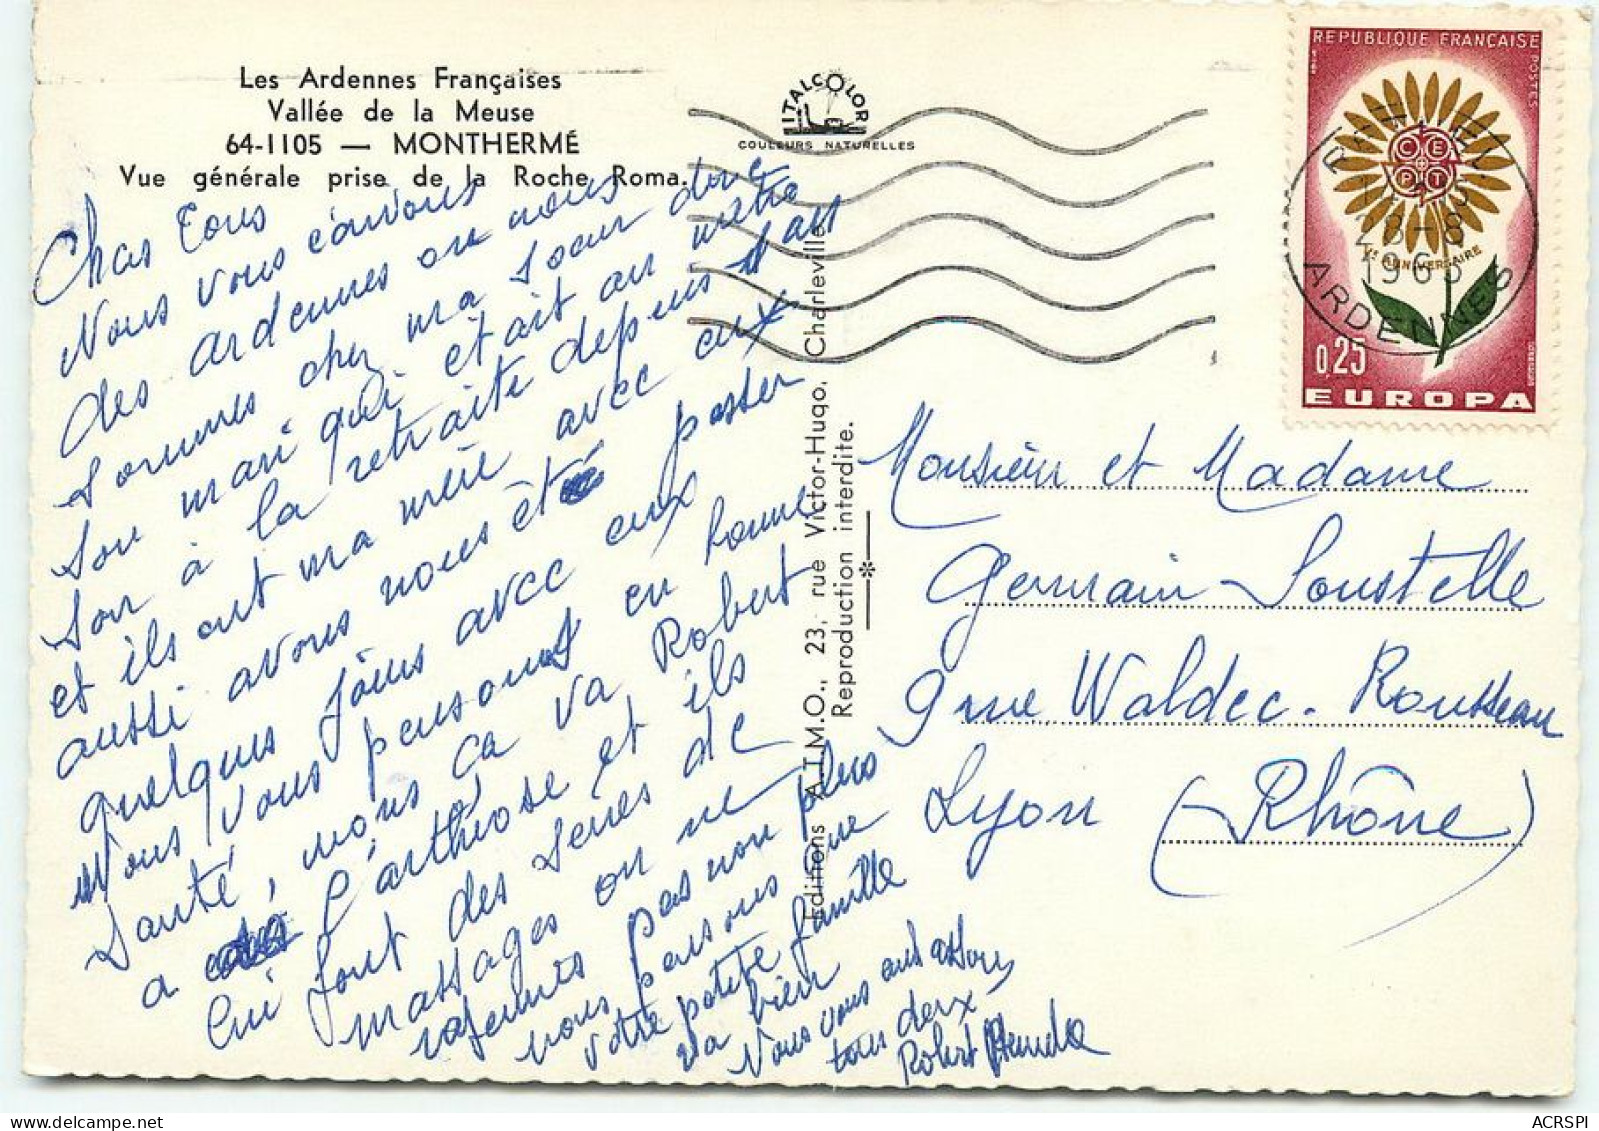 Les Ardennes Françaises
Vallée de la Meuse
64-1105 — MONTHERMÉ
Vue générale prise de la Roche Roma.
Chas Tous
Nous vous écrivons
des ardennes ou nous
sommes chez ma soeur dure
son mari qui était au métro
son à la retraite depuis
et ils ont ma meie avec eux
aussi avons nous été passer
quelques jours avec eux
Nous vous pensons en bonne
Santé, nous ça va Robert
a l'arthrose et ils
lui font des series de
massages on ne
rajeunis pas non plus
nous pensons que
votre petite famille
va bien
Nous vous
tous deux
Robert
ITALCOLOR
COULEURS NATURELLES
Editions A.T.M.O., 23, rue Victor-Hugo, Charleville
Reproduction interdite.
REPUBLIQUE FRANÇAISE
POSTES
CEPT
Ve ANNIVERSAIRE
0,25
EUROPA
RETHEL
28-8
1965
ARDENNES
Monsieur et Madame
Germain Soustelle
9 rue Waldec. Rousseau
Lyon (Rhône)
ACRSPI